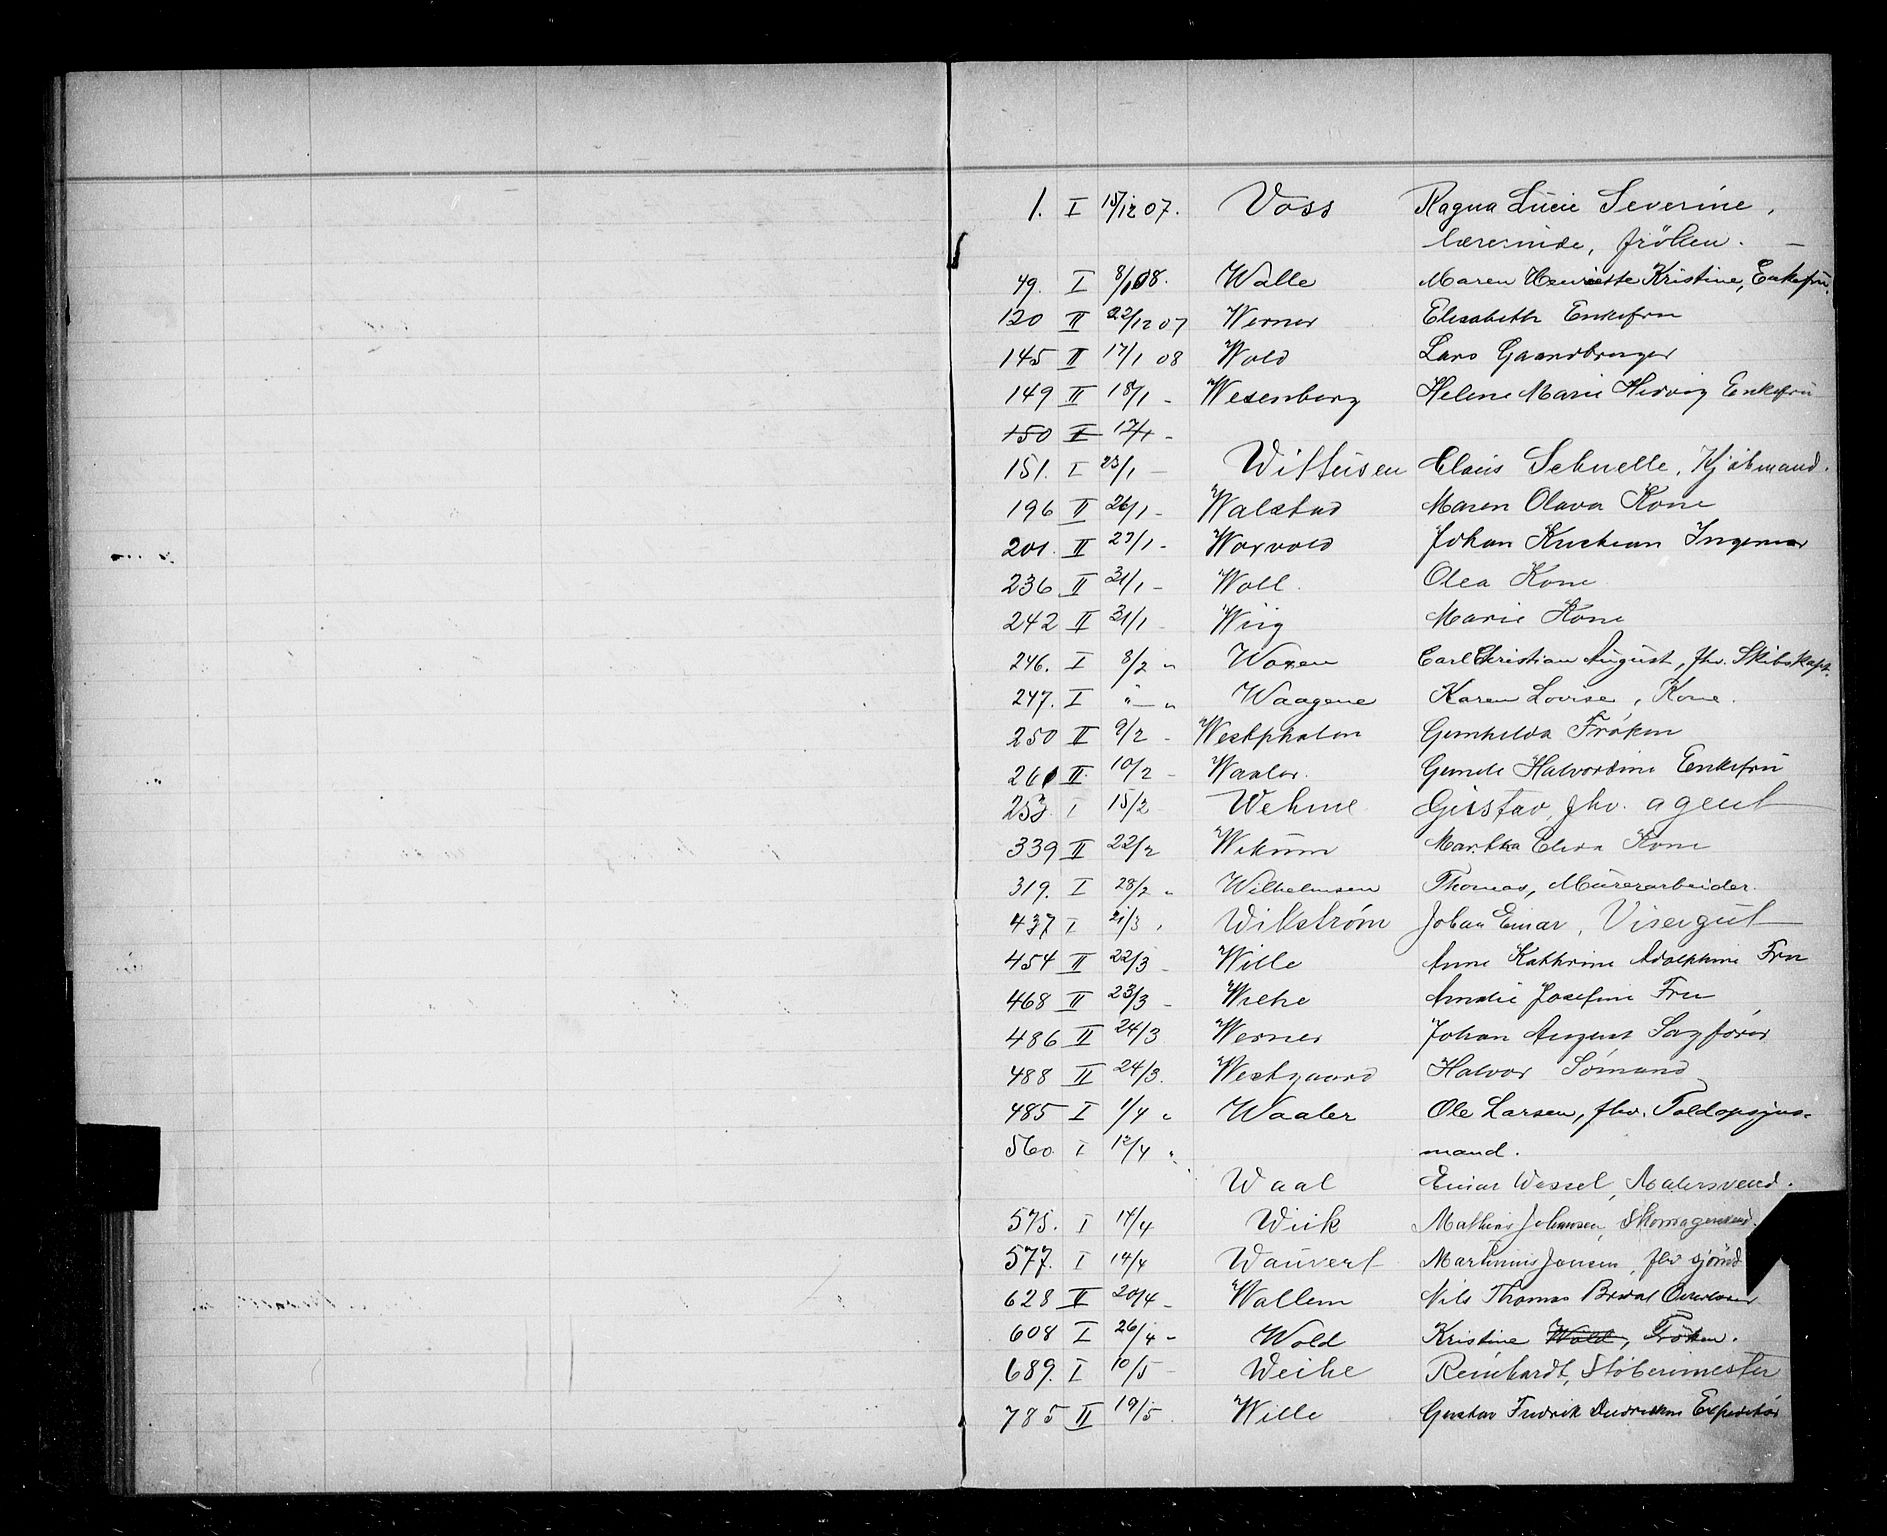 1. I 15/12 07. Voss Ragna Lucie Severine,
lærerinde, fröken. —
49. I 8/1 08. Walle Maren Henriette Kristine, Enkefru.
120 II 22/12 07 Werner Elisabeth Enkefru
145 II 17/1 08 Wold Lars Gaardbruger
149 II 18/1 - Wesenberg Helene Marie Hedvig Enkefru
150 I 17/1 -
151. I 23/1 — Vittusen Claus Schnelle, Kjøbmand.
196 II 26/1 - Walstad Maren Olava Kone
201. II 27/1 - Worvold Johan Kristian Ingeniør
236 II 31/1 - Woll. Olea Kone
242 II 31/1 - Wiig Marie Kone
246. I 8/2 " Woxen Carl Christian August, fhv. Skibskapt.
247. I " — " Waagene Karen Lovise, Kone.
250 II 9/2 - Westphalen Gunhilda Frøken
261 II 10/2 - Waaler. Halvordine Enkefru
253. I 15/2 Wehme Gustav, fhv. agent
339 II 22/2 Wikum Martha Elisa Kone
319. I 28/2 " Wilhelmsen Thomas, Murerarbeider.
437 I 21/3 , Wikstrøm Johan Einar, Visergut
454 II 22/3 - Wille Anne Kathrine Adolphine Fru
468 II 23/3 - Wiehe Amalie Josefine Fru
486 II 24/3 Werner Johan August Sagfører
488 II 24/3. Westgaard Halvor Sømand
485 I 1/4 " Waaler Ole Larsen, fhv. Toldopsyns-
560. I 12/4 " mand.
Waal Einar Wessel, Malersvend.
575. I 14/4 Wiik Mathias Johansen, Skomagersvend.
577. I 14/4 Martinius Jensen, fhv
628 II 20/4 - Wallem Nils Thomas
608 I 26/4 - Wold Kristine Wold, Frøken.
689. I 10/5 - Weihe Reinhardt, Støberimester
785 II 19/5. Wille Gustav Fredrik Expeditør